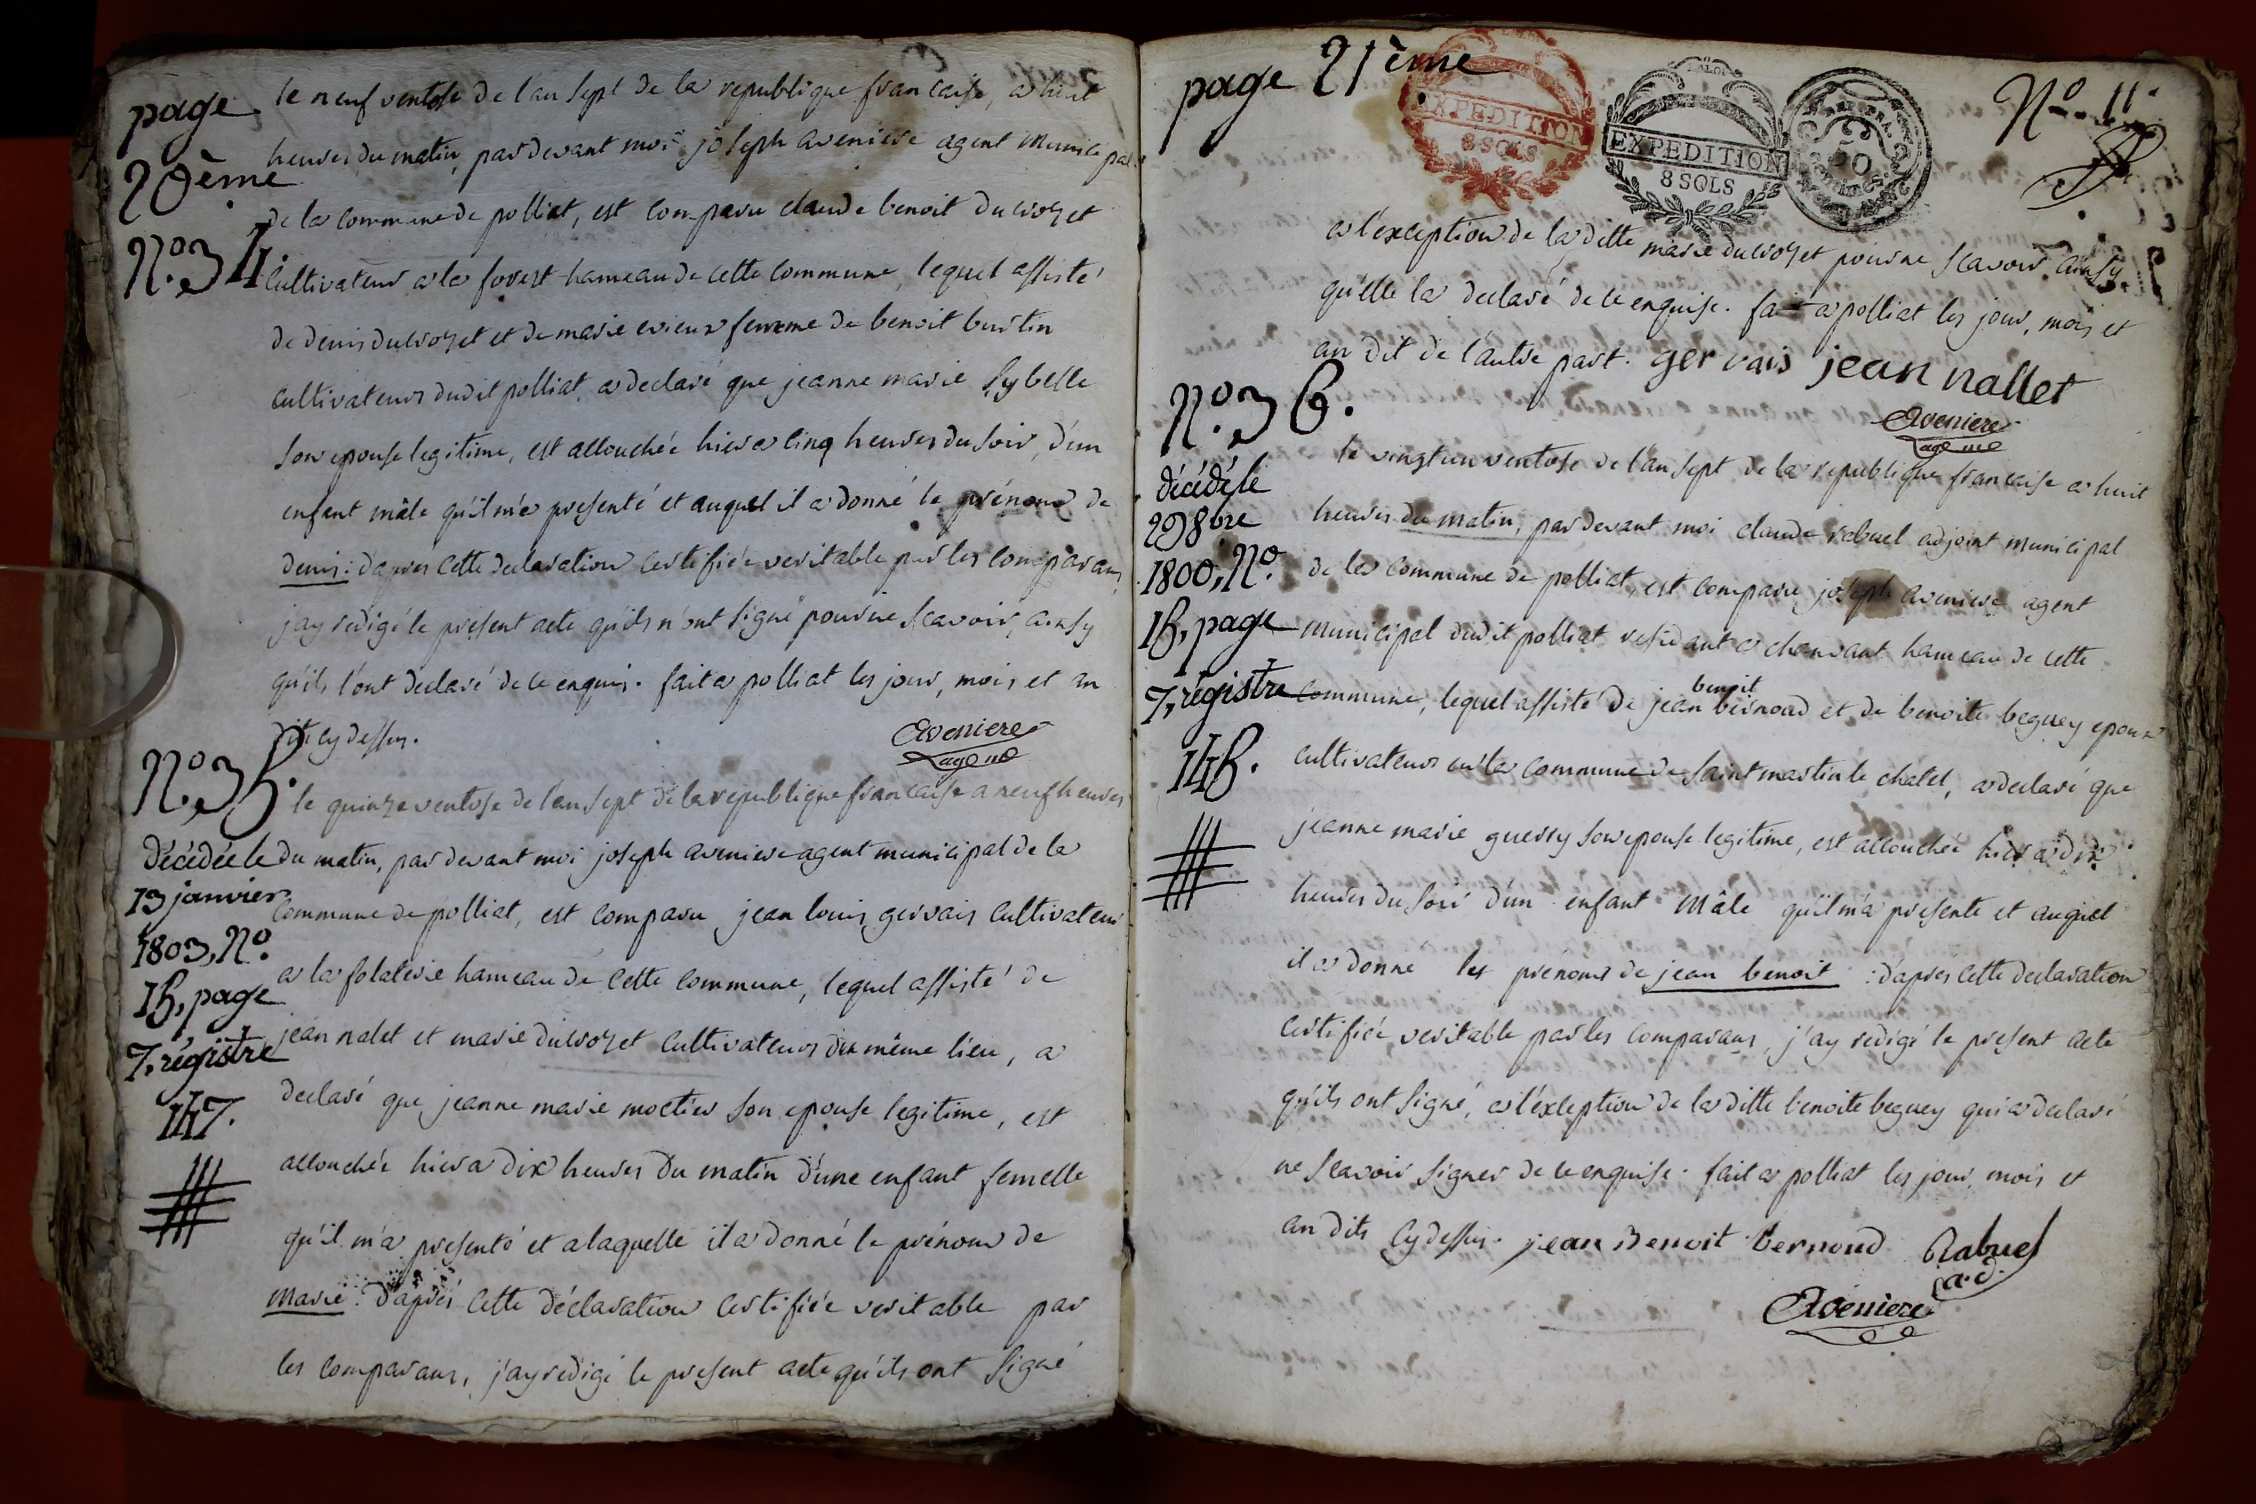 page
20ème
N.º 34.
le neuf ventose de l'an sept de la republique francaise, a huit
heures du matin, pardevant moi joseph aveniere agent municipal
de la commune de polliat, est comparu claude benoit ducrozet
cultivateur a la forest hameau de cette commune, lequel assisté
de denis ducrozet et de marie evieux femme de benoit burtin
cultivateurs dudit polliat, a declaré que jeanne marie sybelle
son epouse legitime, est accouchée hier a cinq heures du soir, d'un
enfant mâle qu'il m'a presenté et auquel il a donné le prénom de
denis: d'apres cette declaration certifiée veritable par les comparans,
j'ay redigé le present acte qu'ils n'ont signé pour ne scavoir, ainsy
qu'ils l'ont declaré de ce enquis. fait a polliat les jour, mois et an
dits cy dessus.
Aveniere
agt. mel
N.º 35.
décédée le
13 janvier
1803, N.º
15, page
7, régistre
147.
le quinze ventose de l'an sept de la republique francaise a neuf heures
du matin, pardevant moi joseph aveniere agent municipal de la
commune de polliat, est comparu jean louis gervais cultivateur
a la folaterie hameau de cette commune, lequel assisté de
jean nalet et marie ducrozet cultivateurs du même lieu, a
declaré que jeanne marie moctier son epouse legitime, est
accouchée hier a dix heures du matin d'une enfant femelle
qu'il m'a presenté et a laquelle il a donné le prénom de
marie: d'aprés cette déclaration certifiée veritable par
les comparans, j'ay redigé le present acte qu'ils ont signé
page 21ème
EXPEDITION
8 SOLS
EXPEDITION
8 SOLS
50
N.º 11.
a l'éxception de la ditte marie ducrozet pour ne scavoir ainsy
qu'elle la declaré de ce enquise. fait a polliat les jour, mois et
an dit de l'autre part. gervais jean nallet
Aveniere
agt. mel
N.º 36.
décédé le
29 8bre
1800, N.º
15, page
7, régistre
145.
le vingt un ventose de l'an sept de la republique francaise a huit
heures du matin, pardevant moi claude rabuel adjoint municipal
de la commune de polliat, est comparu joseph aveniere agent
municipal dudit polliat residant a chanvant hameau de cette
commune, lequel assisté de jean benoit bernoud et de benoite beguey epoux
cultivateurs en la commune de saint martin le chatel, a declaré que
jeanne marie guerry son epouse legitime, est accouchée hier a dix
heures du soir d'un enfant mâle qu'il m'a presenté et auquel
il a donné les prénoms de jean benoit : d'aprés cette declaration
certifiée veritable par les comparans, j'ay redigé le present acte
qu'ils ont signé, a l'éxception de la ditte benoite beguey qui a declaré
ne scavoir signer de ce enquise. fait a polliat les jour, mois et
an dits cy dessus. jean Benoit bernoud Rabuel
a.d.
Aveniere